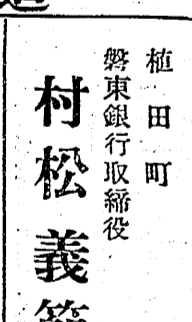 植田町
磐東銀行取締役
村松義